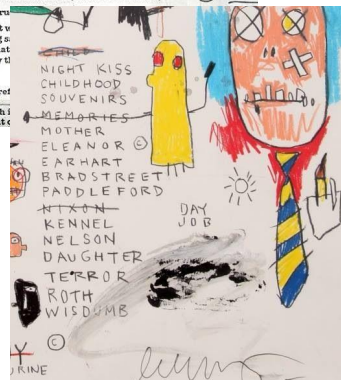 CHILD
NIGHT KISS
CHILDHOOD
SOUVENIRS
MEMORIES
MOTHER
ELEANOR ©
EARHART
BRADSTREET
PADDLEFORD
NIXON
KENNEL
NELSON
DAUGHTER
TERROR
ROTH
WISDOMB
©
DAY
JOB
URINE